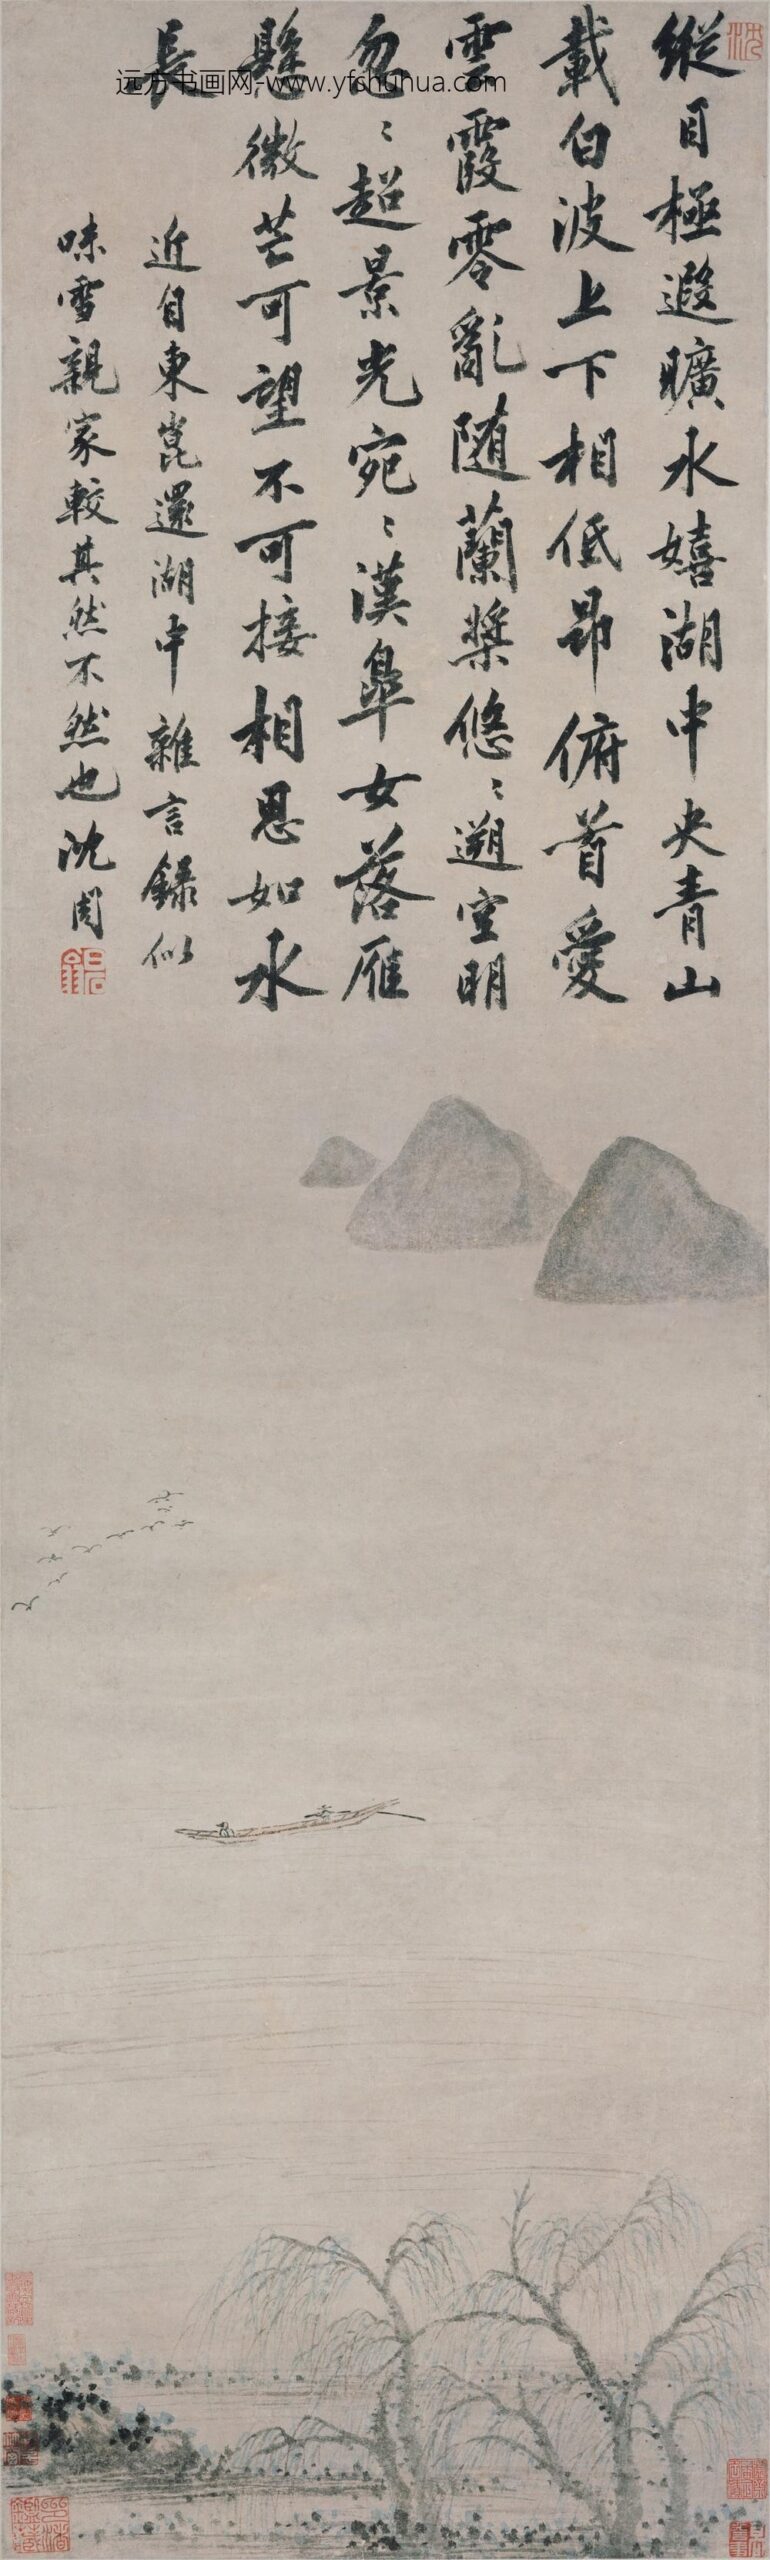 縱目極遐曠水嬉湖中央青山
載白波上下相低昂俯首愛
雲霞零亂隨蘭槳悠〻遡空明
忽〻超景光宛〻漢皐女落雁
懸微芒可望不可接相思如水
長
近自東崑還湖中雜言錄似
味雪親家較其然不然也沈周
远方书画网-www.yfshuhua.com